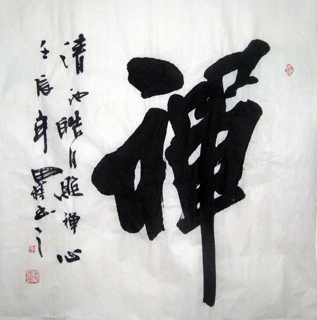 禅
清池皓月照禅心
壬辰年